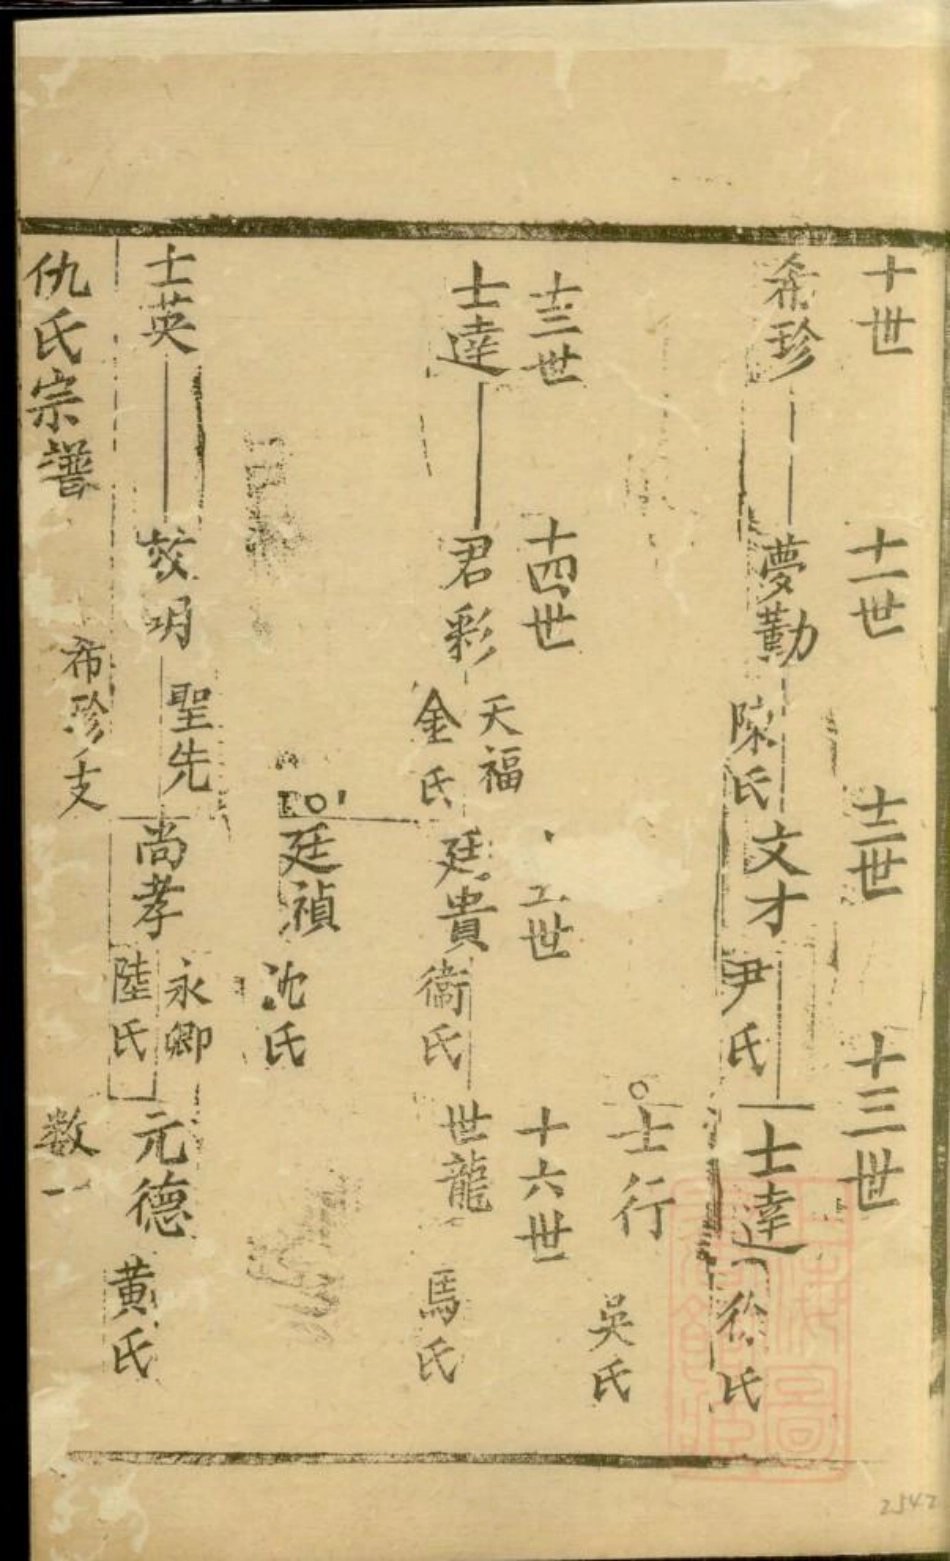 十世 十一世 十二世 十三世
希珍 夢勤 陳氏 文才 尹氏 士達 徐氏
士行 吳氏
十三世 十四世 世 十六世
士達 君彩 天福 金氏 廷貴 衞氏 世龍 馬氏
廷禎 沈氏
士英 明 聖先 尚孝 永卿 陸氏 元德 黄氏
仇氏宗譜 希珍支 数一
2542